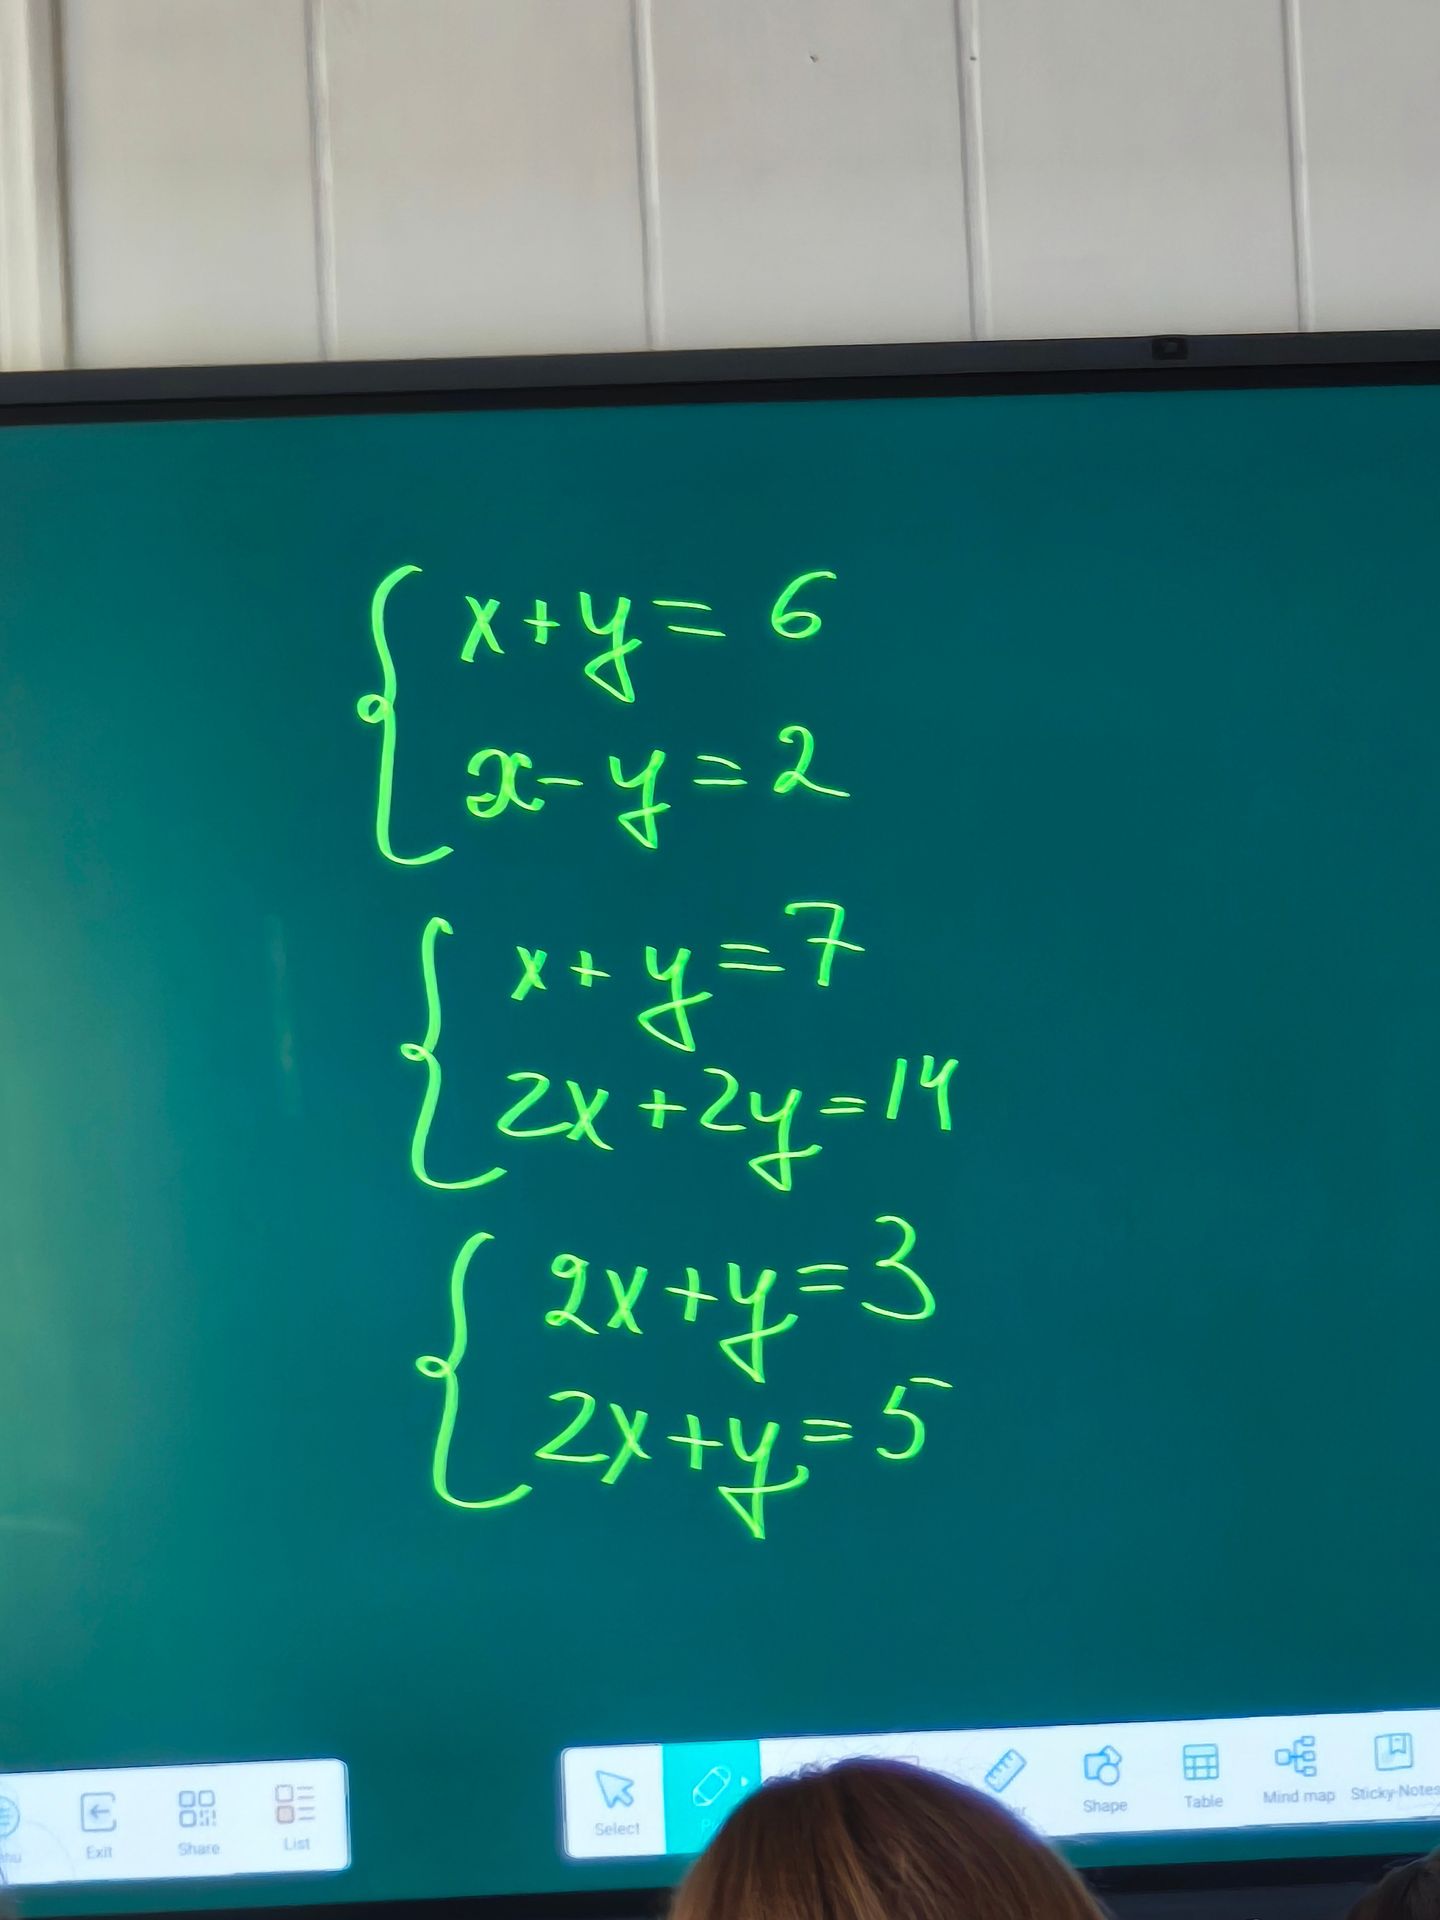 x+y=6
x-y=2
x+y=7
2x+2y=14
2x+y=3
2x+y=5
Exit Share List Select Shape Table Mind map Sticky-Notes